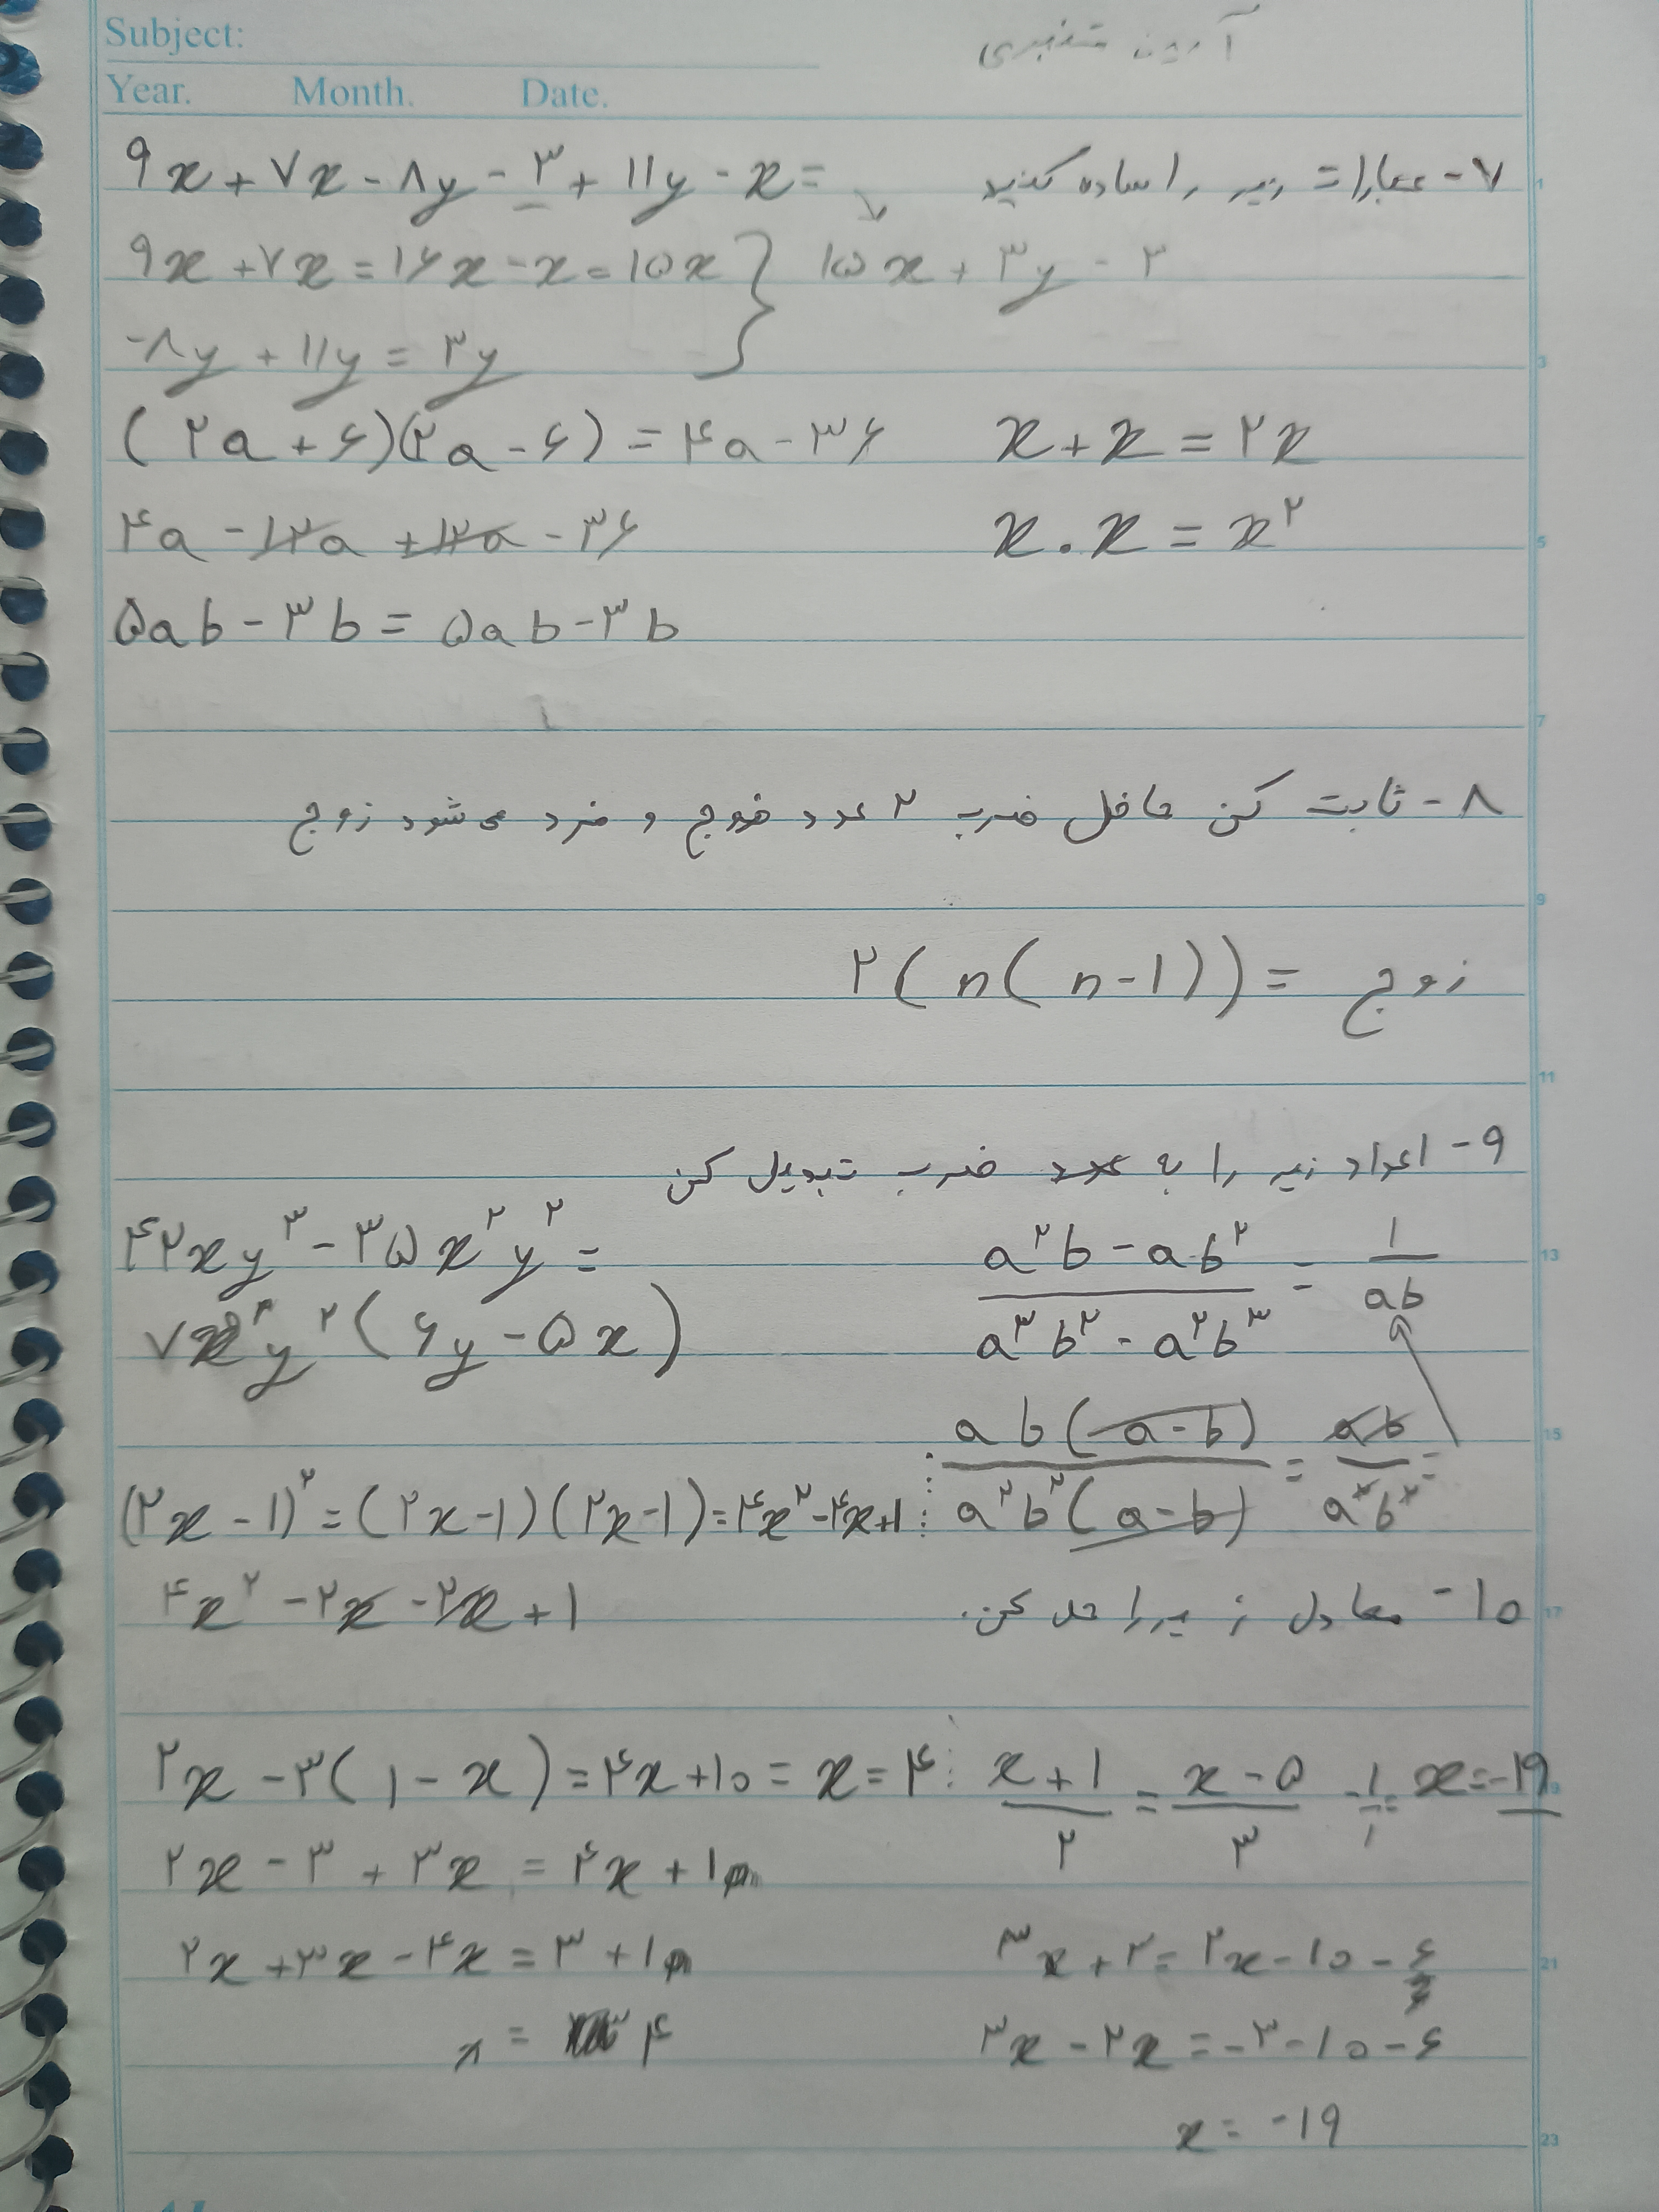 Subject:
Year. Month. Date.
۷- عبارات زیر را ساده کنید
۹x + ۷x - ۸y - ۳ + ۱۱y - x =
۹x + ۷x = ۱۶x - x = ۱۵x } ۱۵x + ۳y - ۳
-۸y + ۱۱y = ۳y
(۲a + ۶)(۲a - ۶) = ۴a - ۳۶ x + x = ۲x
۴a - ۱۲a + ۱۲a - ۳۶ x . x = x^۲
۵ab - ۳b = ۵ab - ۳b
۸- ثابت کن حاصل ضرب ۲ عدد زوج و فرد می شود زوج
۲(n(n-۱)) = زوج
۹- اعداد زیر را به ضرب تبدیل کن
۴۲xy^۳ - ۳۵x^۲y^۲ = (a^۲b - ab^۲)/(a^۳b^۲ - a^۲b^۳) = ۱/ab
۷xy^۲(۶y - ۵x)
ab(a-b)/a^۲b^۲(a-b) = ab/a^۲b^۲ =
(۲x - ۱)^۲ = (۲x-۱)(۲x-۱) = ۴x^۲ - ۴x + ۱
۴x^۲ - ۲x - ۲x + ۱
۱۰- معادل زیر را حل کن.
۲x - ۳(۱ - x) = ۴x + ۱۰ = x = ۴ (x + ۱)/۲ = (x - ۵)/۳ - ۱/۱ = x = -۱۹
۲x - ۳ + ۳x = ۴x + ۱
۲x + ۳x - ۴x = ۳ + ۱ ۳x + ۳ = ۲x - ۱۰ - ۶
x = ۴ ۳x - ۲x = -۳ - ۱۰ - ۶
x = -۱۹